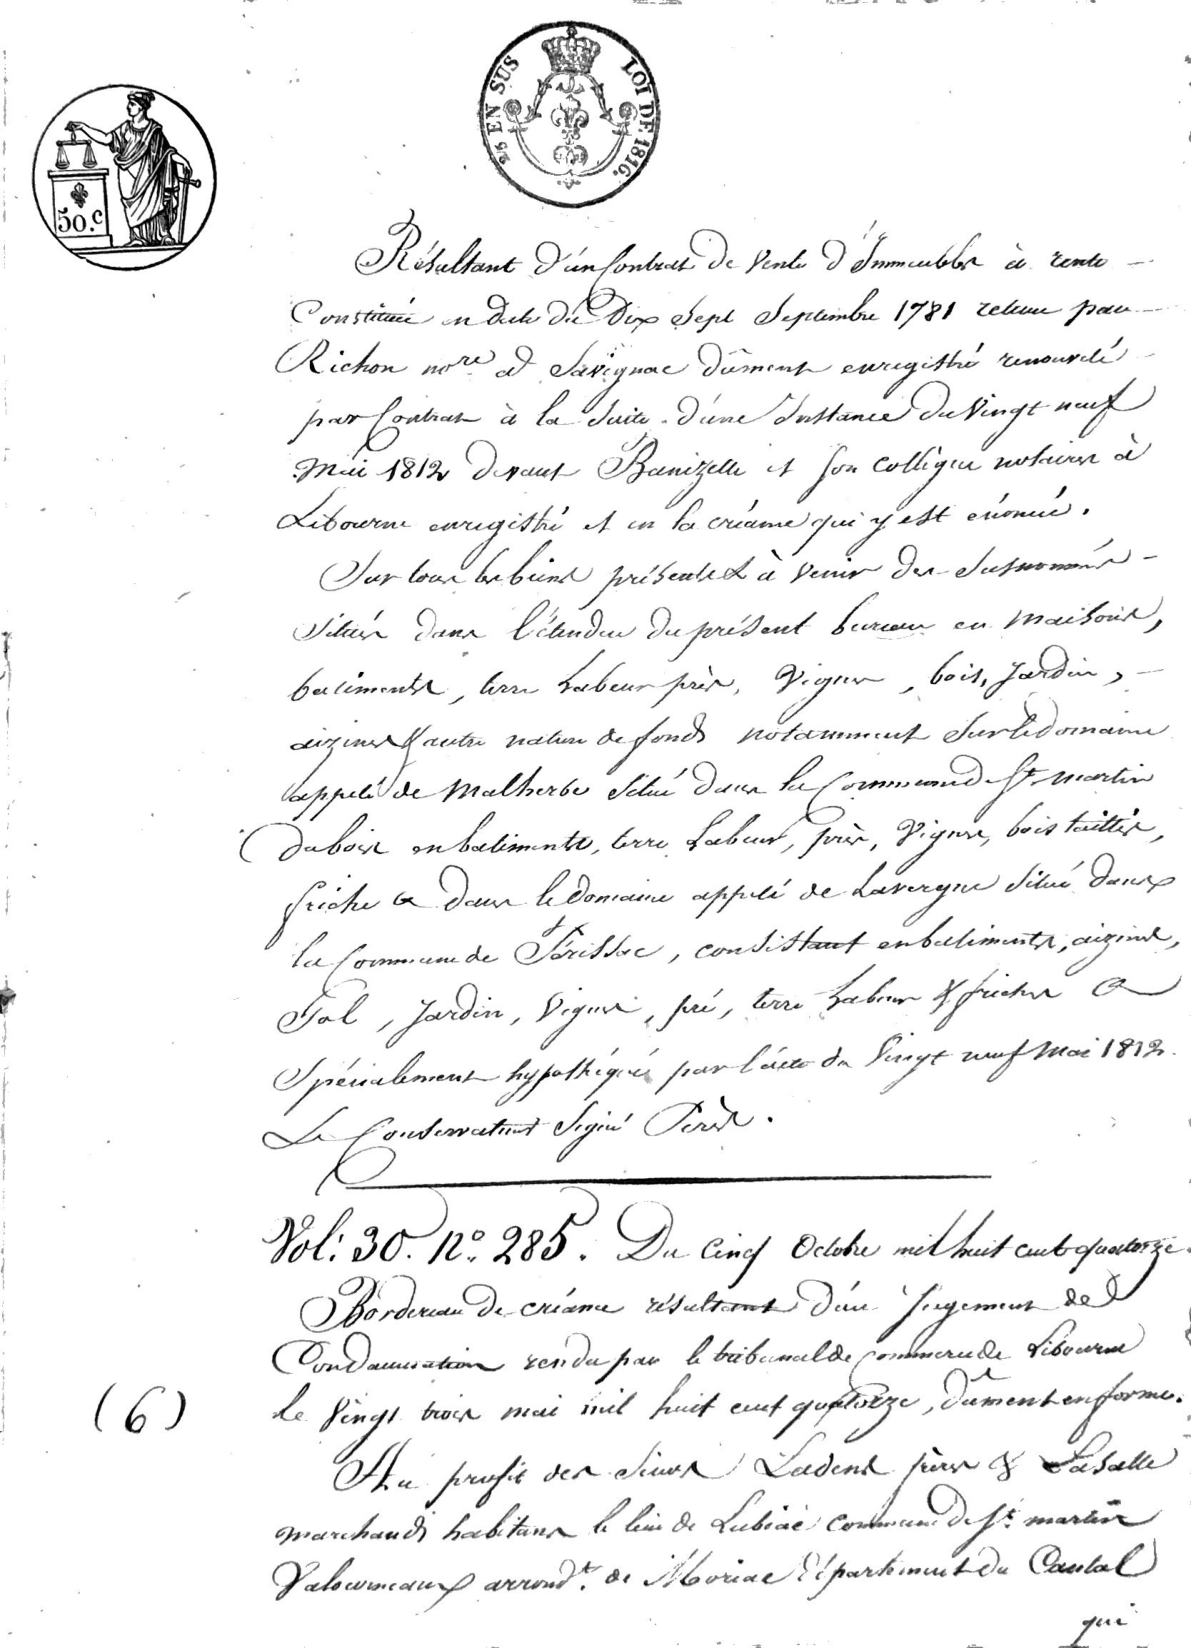 25 EN SUS
LOI DE 1816.
50.c
Résultant d'un Contrat de Vente d'Immeubles à rente
Constituée en date du Dix Sept Septembre 1781 retenu par
Richon nore à Savignac dûment enregistré renouvelé
par Contrat à la Suite d'une Instance du Vingt neuf
Mai 1812 devant Banizette et son collègue notaires à
Libourne enregistré et en la créance qui y est énoncée.
Sur tous les biens présents & à venir des Susnommés
Situés dans l'étendue du présent bureau en maisons,
batiments, terre Labeur près, Vignes, bois, Jardin,
aizines & autre nature de fonds notamment Sur le domaine
appelé de Malherbe Situé dans la Commune de St. martin
du bois en batiments, terre Labeur, près, Vignes, bois taillis,
friche & dans le domaine appelé de Lavergne Situé dans
la Commune de Périssac, consistant en batiments, aizines,
Sol, Jardin, Vignes, pré, terre Labour & friches &
Spécialement hypothéqués par l'acte du Vingt neuf Mai 1812.
Le Conservateur Signé Pérès.
Vol: 30. No. 285. Du Cinq Octobre mil huit cent quatorze
Bordereau de créance résultant d'un Jugement de
Condamnation rendu par le tribunal de Commerce de Libourne
le Vingt trois mai mil huit cent quatorze, dûment en forme.
(6)
Au profit des Sieurs Ladent frères & Lasalle
marchands habitans le lieu de Lubiac commune de St. martin
Valourneaux arrondt. de Moriac Département du Cantal
qui